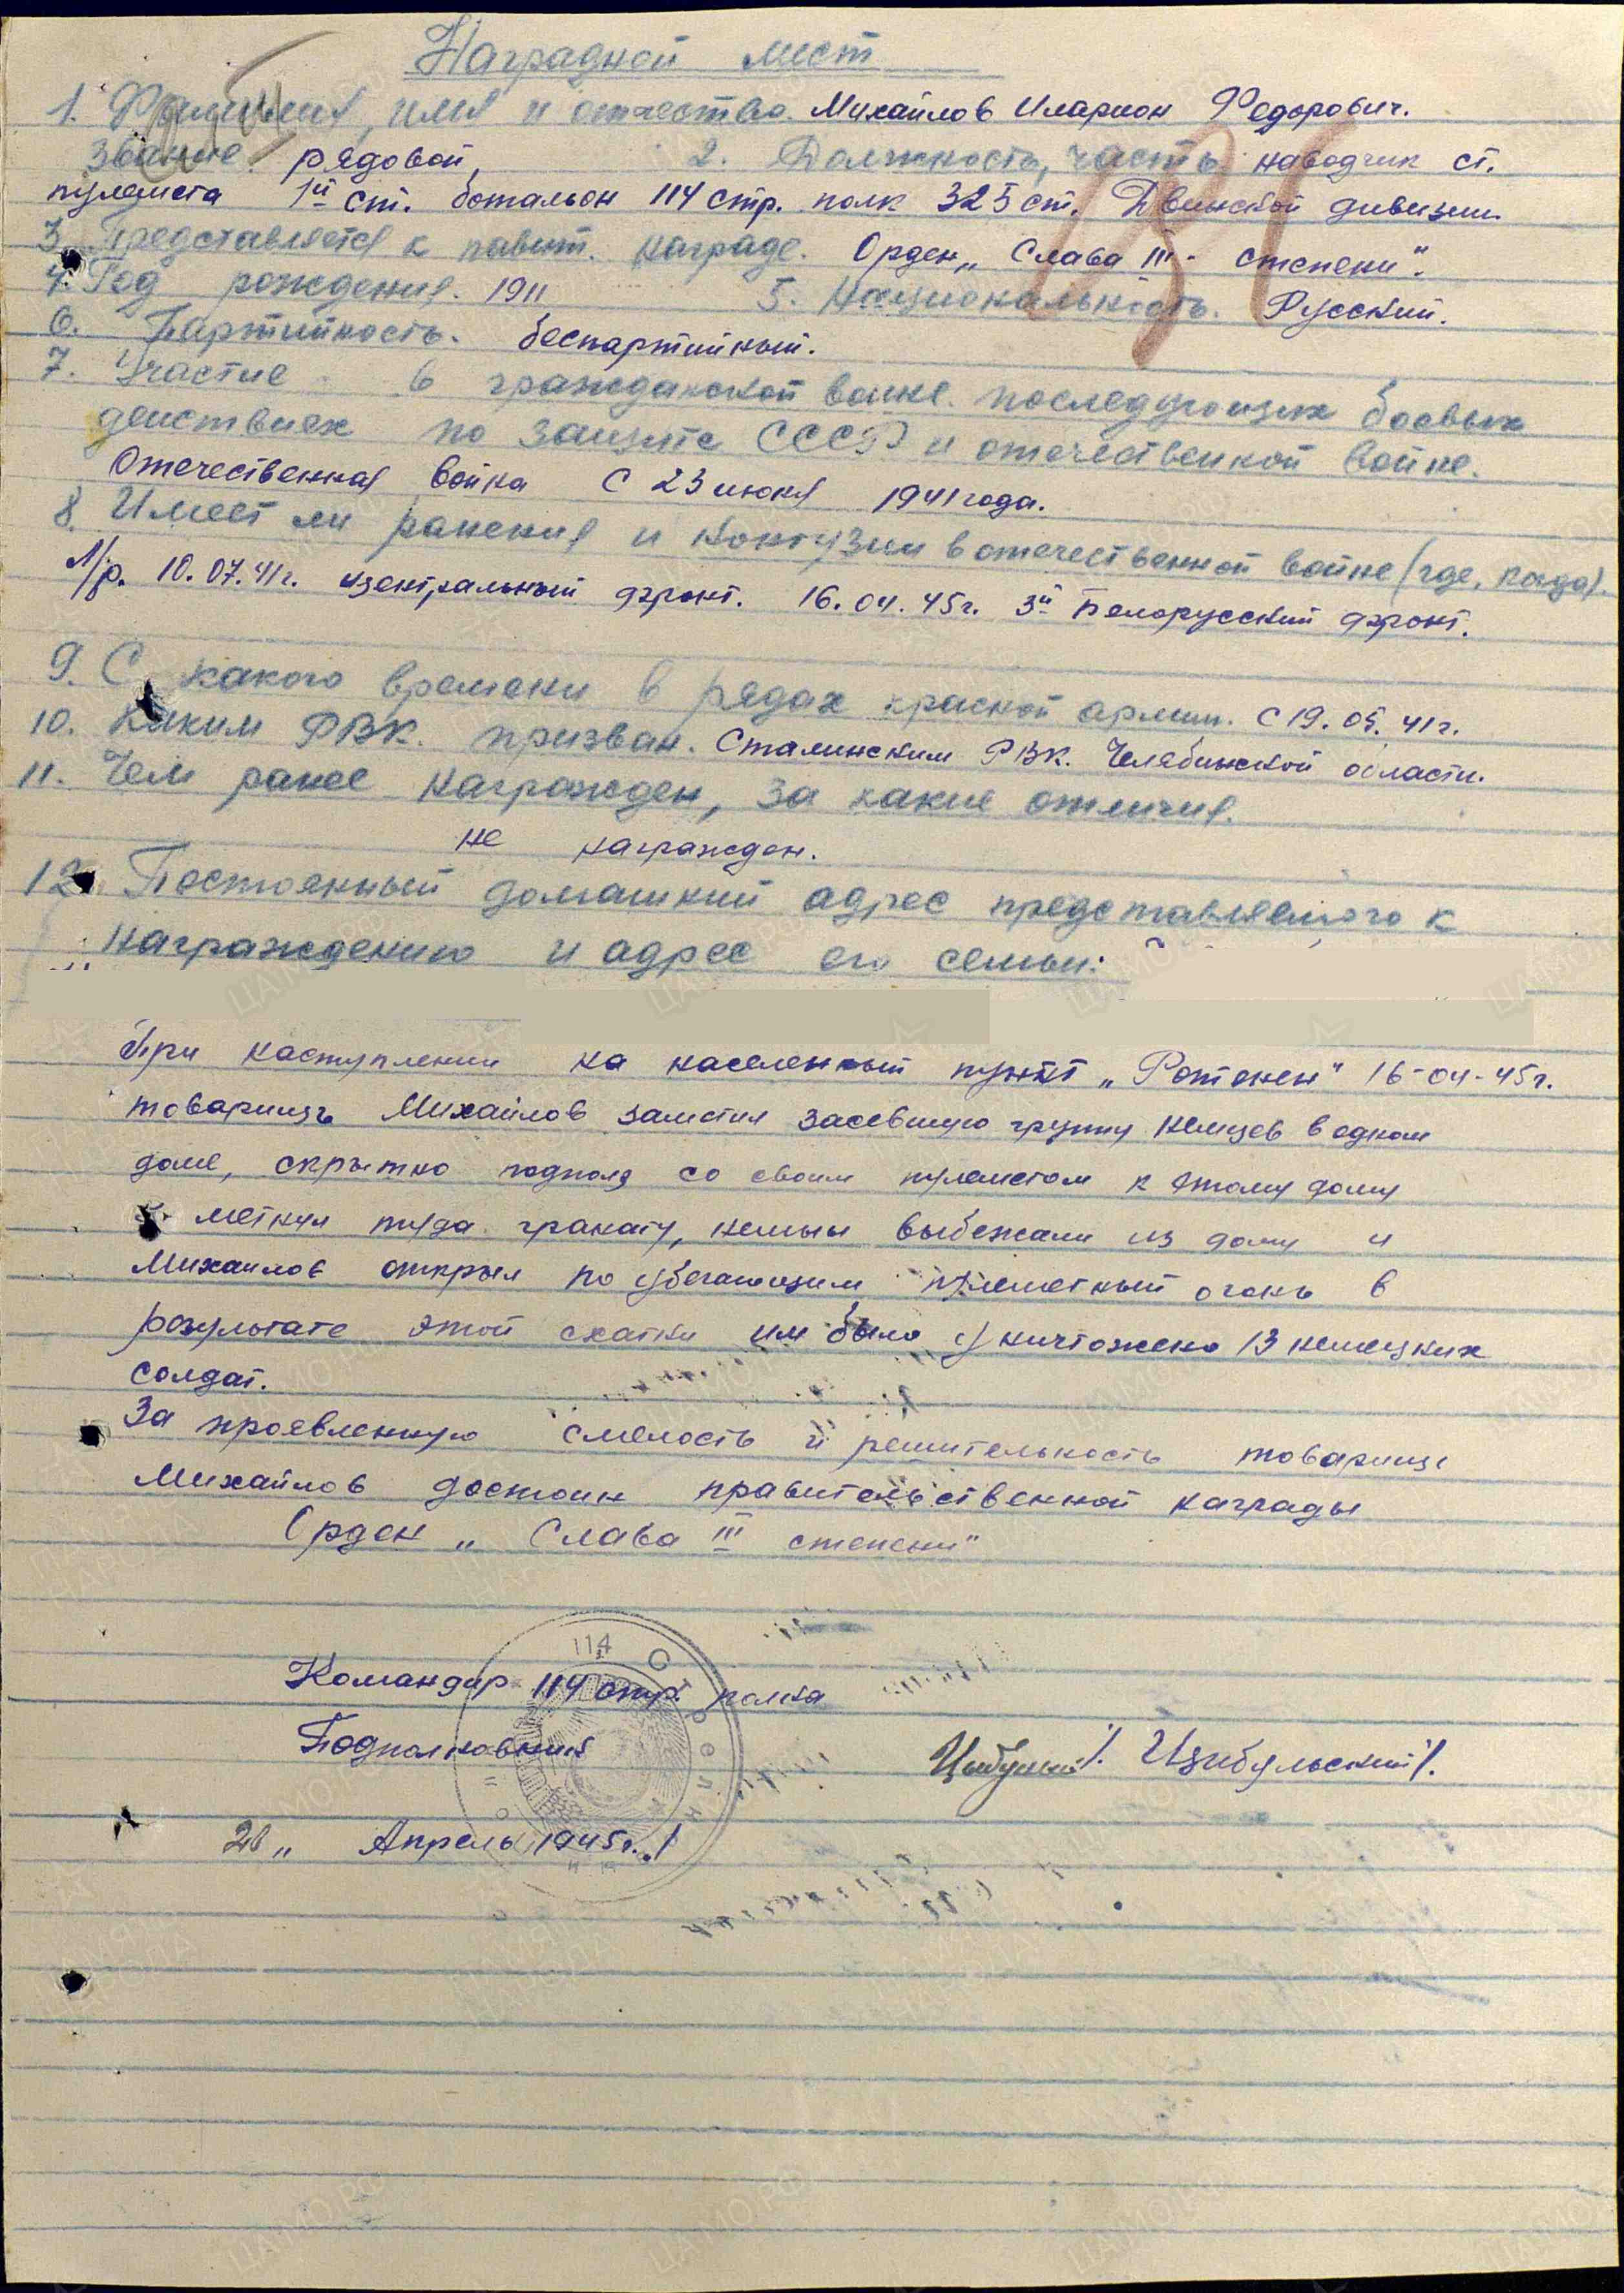 Наградной лист
1. Фамилия, имя и отчество. Михайлов Иларион Федорович.
Звание. рядовой, 2. Должность, часть наводчик ст.
пулемета 1й ст. баталион 114 стр. полк 325 ст. Двинской дивизии.
3. Представляется к павит. награде. Орден „Слава III - степени".
4. Год рождения. 1911 5. Национальность. Русский.
6. Партийность. беспартийный.
7. Участие в гражданской войне. последующих боевых
действиях по защите СССР и отечественной войне.
Отечественная война с 23 июня 1941 года.
8. Имеет ли ранения и контузии в отечественной войне (где, когда).
Л/р. 10.07.41г. центральный фронт. 16.04.45г. 3й Белорусский фронт.
9. С какого времени в рядах красной армии. с 19.05.41г.
10. Каким РВК. призван. Сталинским РВК. Челябинской области.
11. Чем ранее награжден, за какие отличия.
не награжден.
12. Постоянный домашний адрес представляемого к
награждению и адрес его семьи:
При наступлении на населенный пункт „Ротенен" 16-04-45г.
товарищь Михайлов заметил засевшую группу немцев в одном
доме, скрытно подполз со своим пулеметом к этому дому
и меткул туда гранату, немцы выбежали из дому и
Михайлов открыл по убегающим пулеметный огонь в
результате этой схатки им было уничтожено 13 немецких
солдат.
За проявленную смелость и решительность товарищ
Михайлов достоин правительственной награды
Орден „Слава III степени"
114 Стрелк
Командир 114 стр. полка
Подполковник /Цибульский/.
20 „ Апрель 1945г.